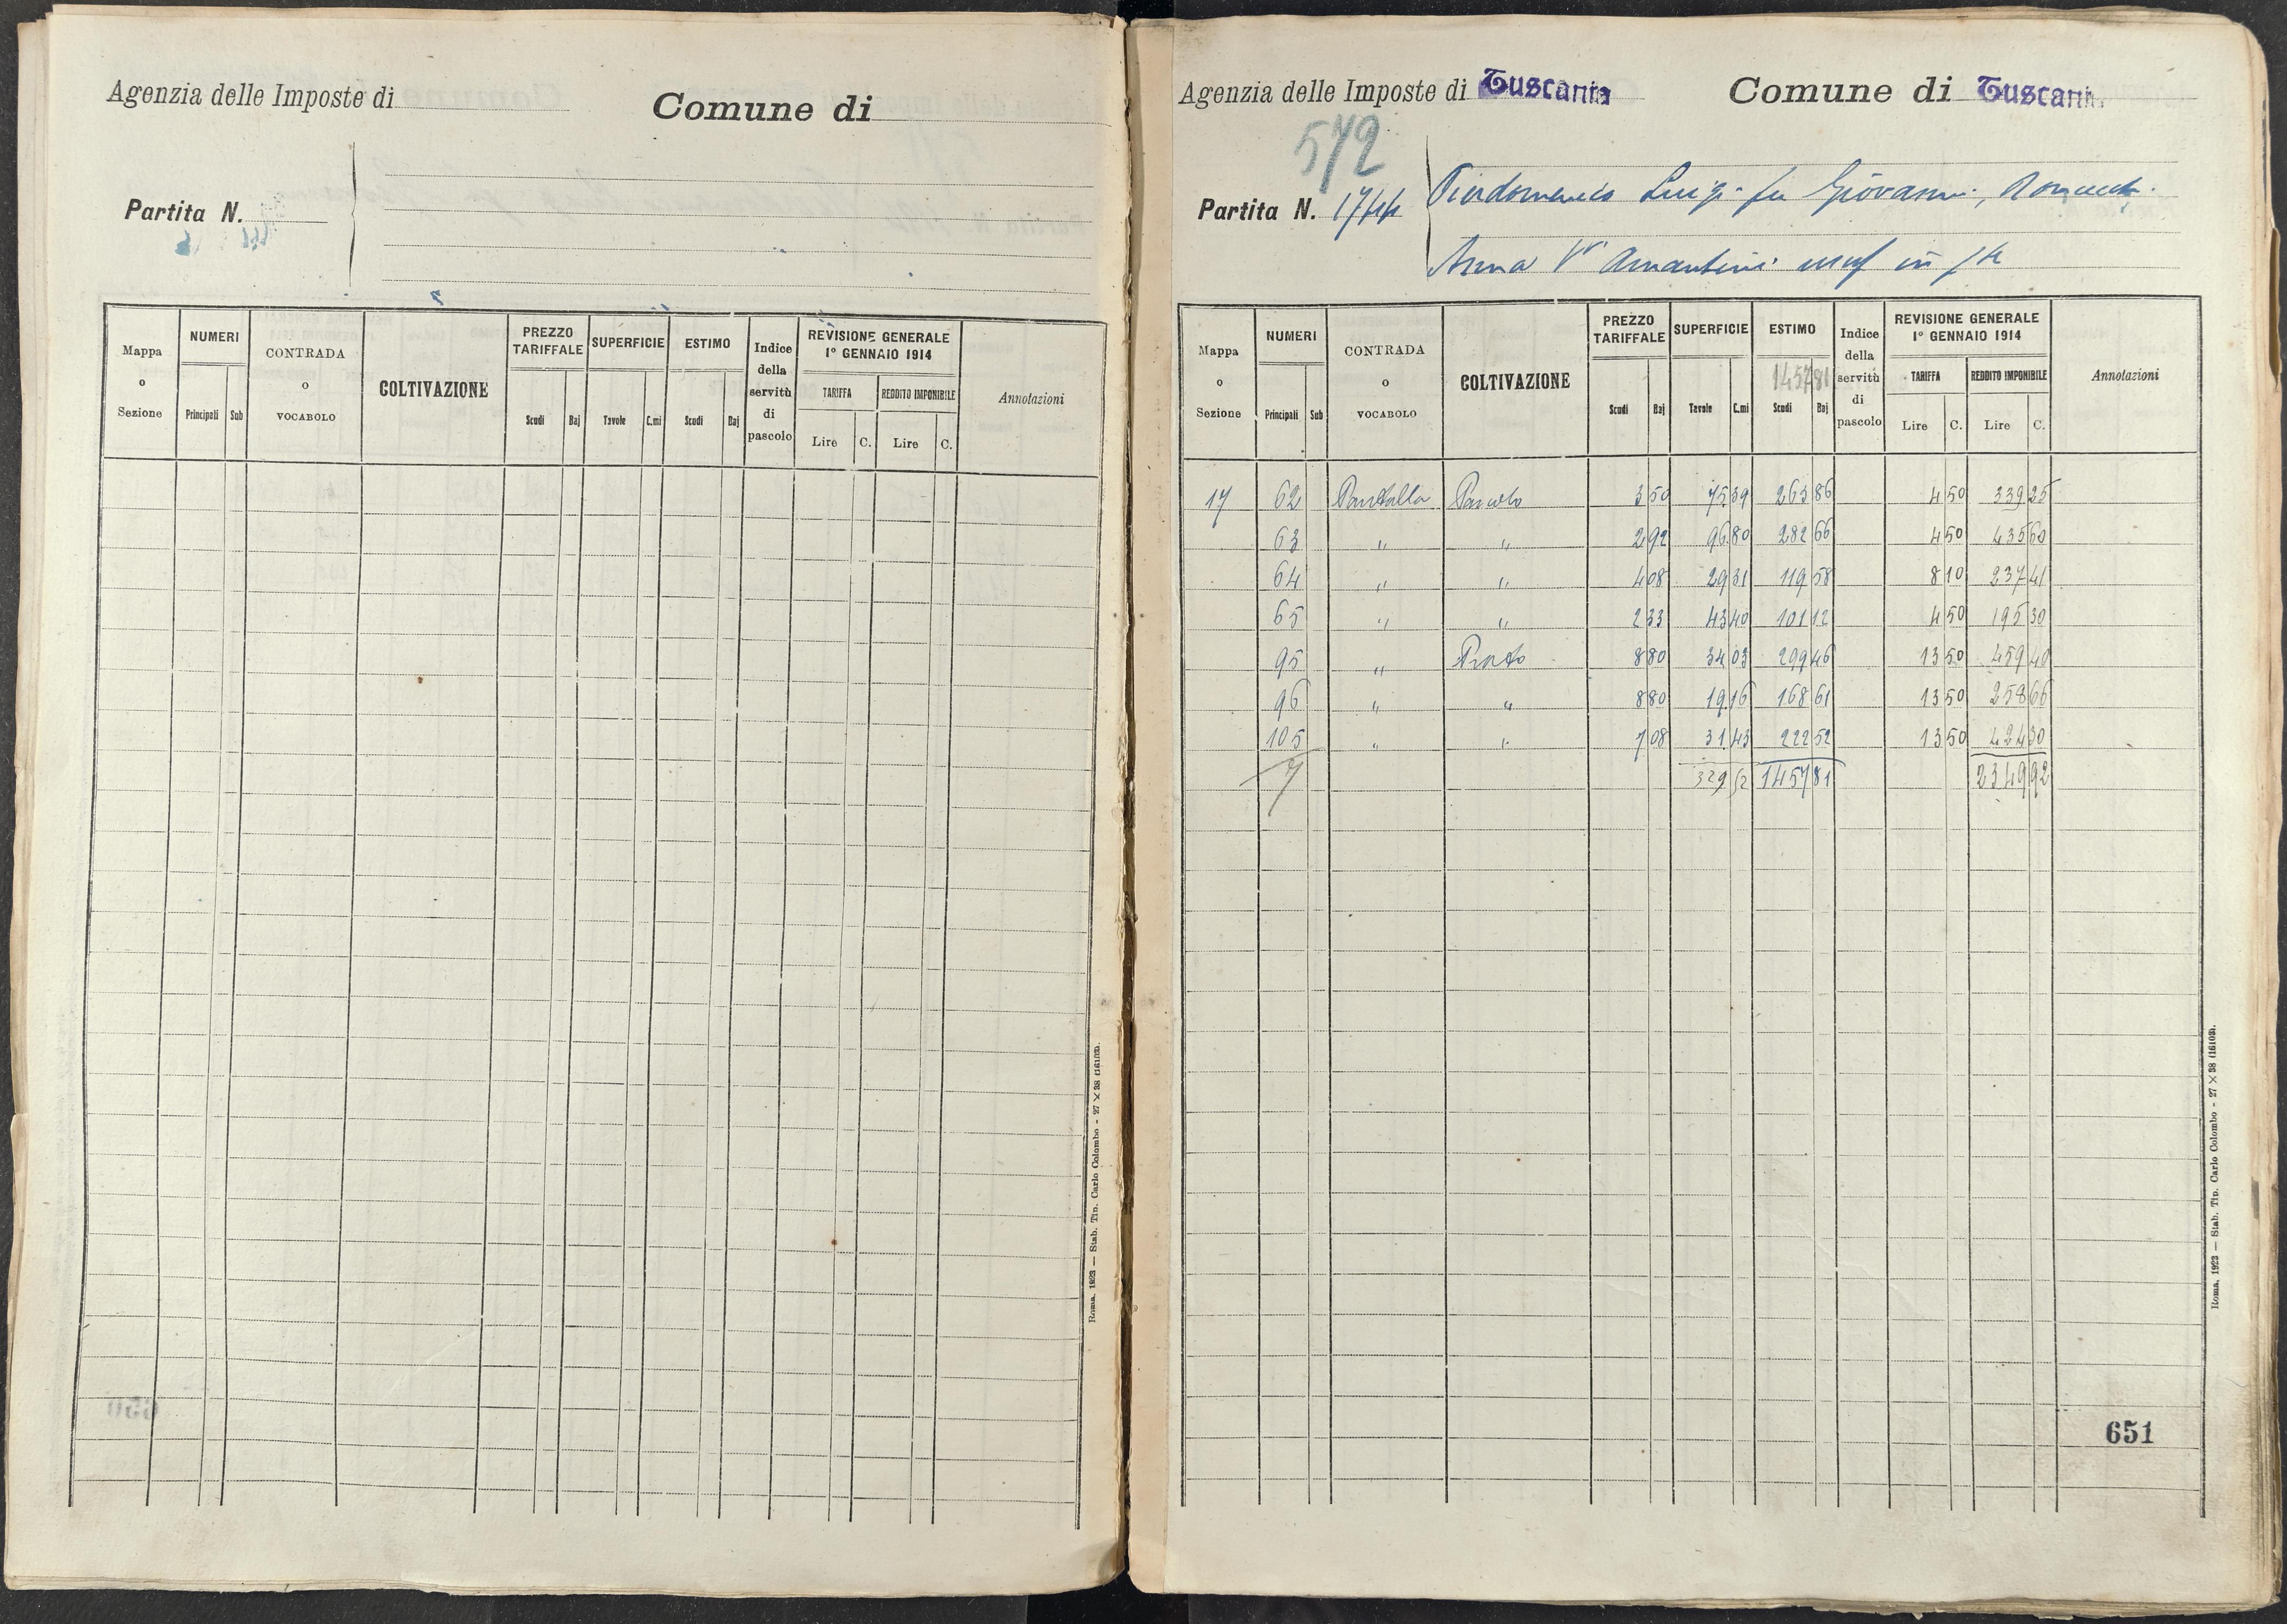 Agenzia delle Imposte di
Comune di
Partita N.
Mappa o Sezione | NUMERI Principali Sub | CONTRADA o VOCABOLO | COLTIVAZIONE | PREZZO TARIFFALE Scudi Baj | SUPERFICIE Tavole C.mi | ESTIMO Scudi Baj | Indice della servitù di pascolo | REVISIONE GENERALE 1° GENNAIO 1914 TARIFFA Lire C. REDDITO IMPONIBILE Lire C. | Annotazioni
Roma, 1923 — Stab. Tip. Carlo Colombo - 27 × 38 (16103).
Agenzia delle Imposte di Tuscania Comune di Tuscania
572
Partita N. 1744 Pierdomenico Luigi fu Giovanni,
Anna Vª Amantini usuf in
Mappa o Sezione | NUMERI Principali Sub | CONTRADA o VOCABOLO | COLTIVAZIONE | PREZZO TARIFFALE Scudi Baj | SUPERFICIE Tavole C.mi | ESTIMO 1457 81 Scudi Baj | Indice della servitù di pascolo | REVISIONE GENERALE 1° GENNAIO 1914 TARIFFA Lire C. REDDITO IMPONIBILE Lire C. | Annotazioni
17 62 Pantalla Pascolo 3 50 75 39 263 86 4 50 339 25
63 " " 2 92 96 80 282 66 4 50 435 60
64 " " 4 08 29 31 119 58 8 10 237 41
65 " " 2 33 43 40 101 12 4 50 195 30
95 " Prato 8 80 34 03 299 46 13 50 459 40
96 " " 8 80 19 16 168 61 13 50 258 66
105 " " 7 08 31 43 222 52 13 50 424 30
7 329 52 1457 81 2349 92
651
Roma, 1923 — Stab. Tip. Carlo Colombo - 27 × 38 (16103).